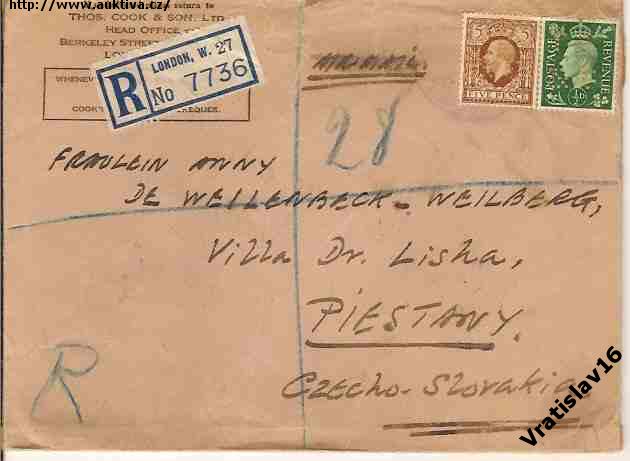 http://www.auktiva.cz/
return to
THOS. COOK & SON. LTD
HEAD OFFICE
BERKELEY STREET
LO
WHENEV
COOK'S
EQUES.
R
LONDON, W. 27
No 7736
5
5
FIVE PENCE
POSTAGE
REVENUE
½D
28
FRAULEIN ANNY
DE WEILENBECK-WEILBERG,
Villa Dr. Lisha,
PIESTANY.
Czecho-Slovakia
R
Vratislav16